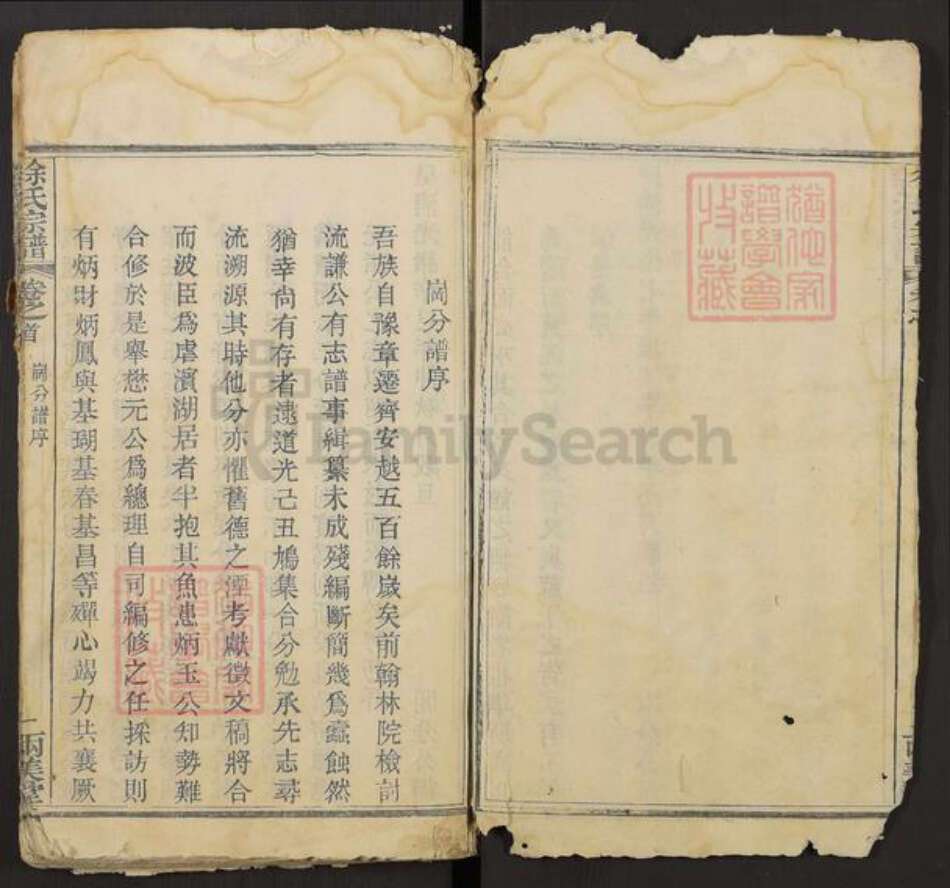 崗分譜序
吾族自豫章遷齊安越五百餘歲矣前翰林院檢討
流謙公有志譜事緝纂未成殘編斷簡幾爲蠹蝕然
猶幸尙有存者逮道光己丑鳩集合分勉承先志尋
流溯源其時他分亦懼舊德之湮考獻徵文稿將合
而波臣爲虐濱湖居者半抱其魚患炳玉公知勢難
合修於是舉懋元公爲總理自司編修之任採訪則
有炳財炳鳳與基瑚基春基昌等殫心竭力共襄厥
徐氏宗譜
卷之首
崗分譜序
一
FamilySearch